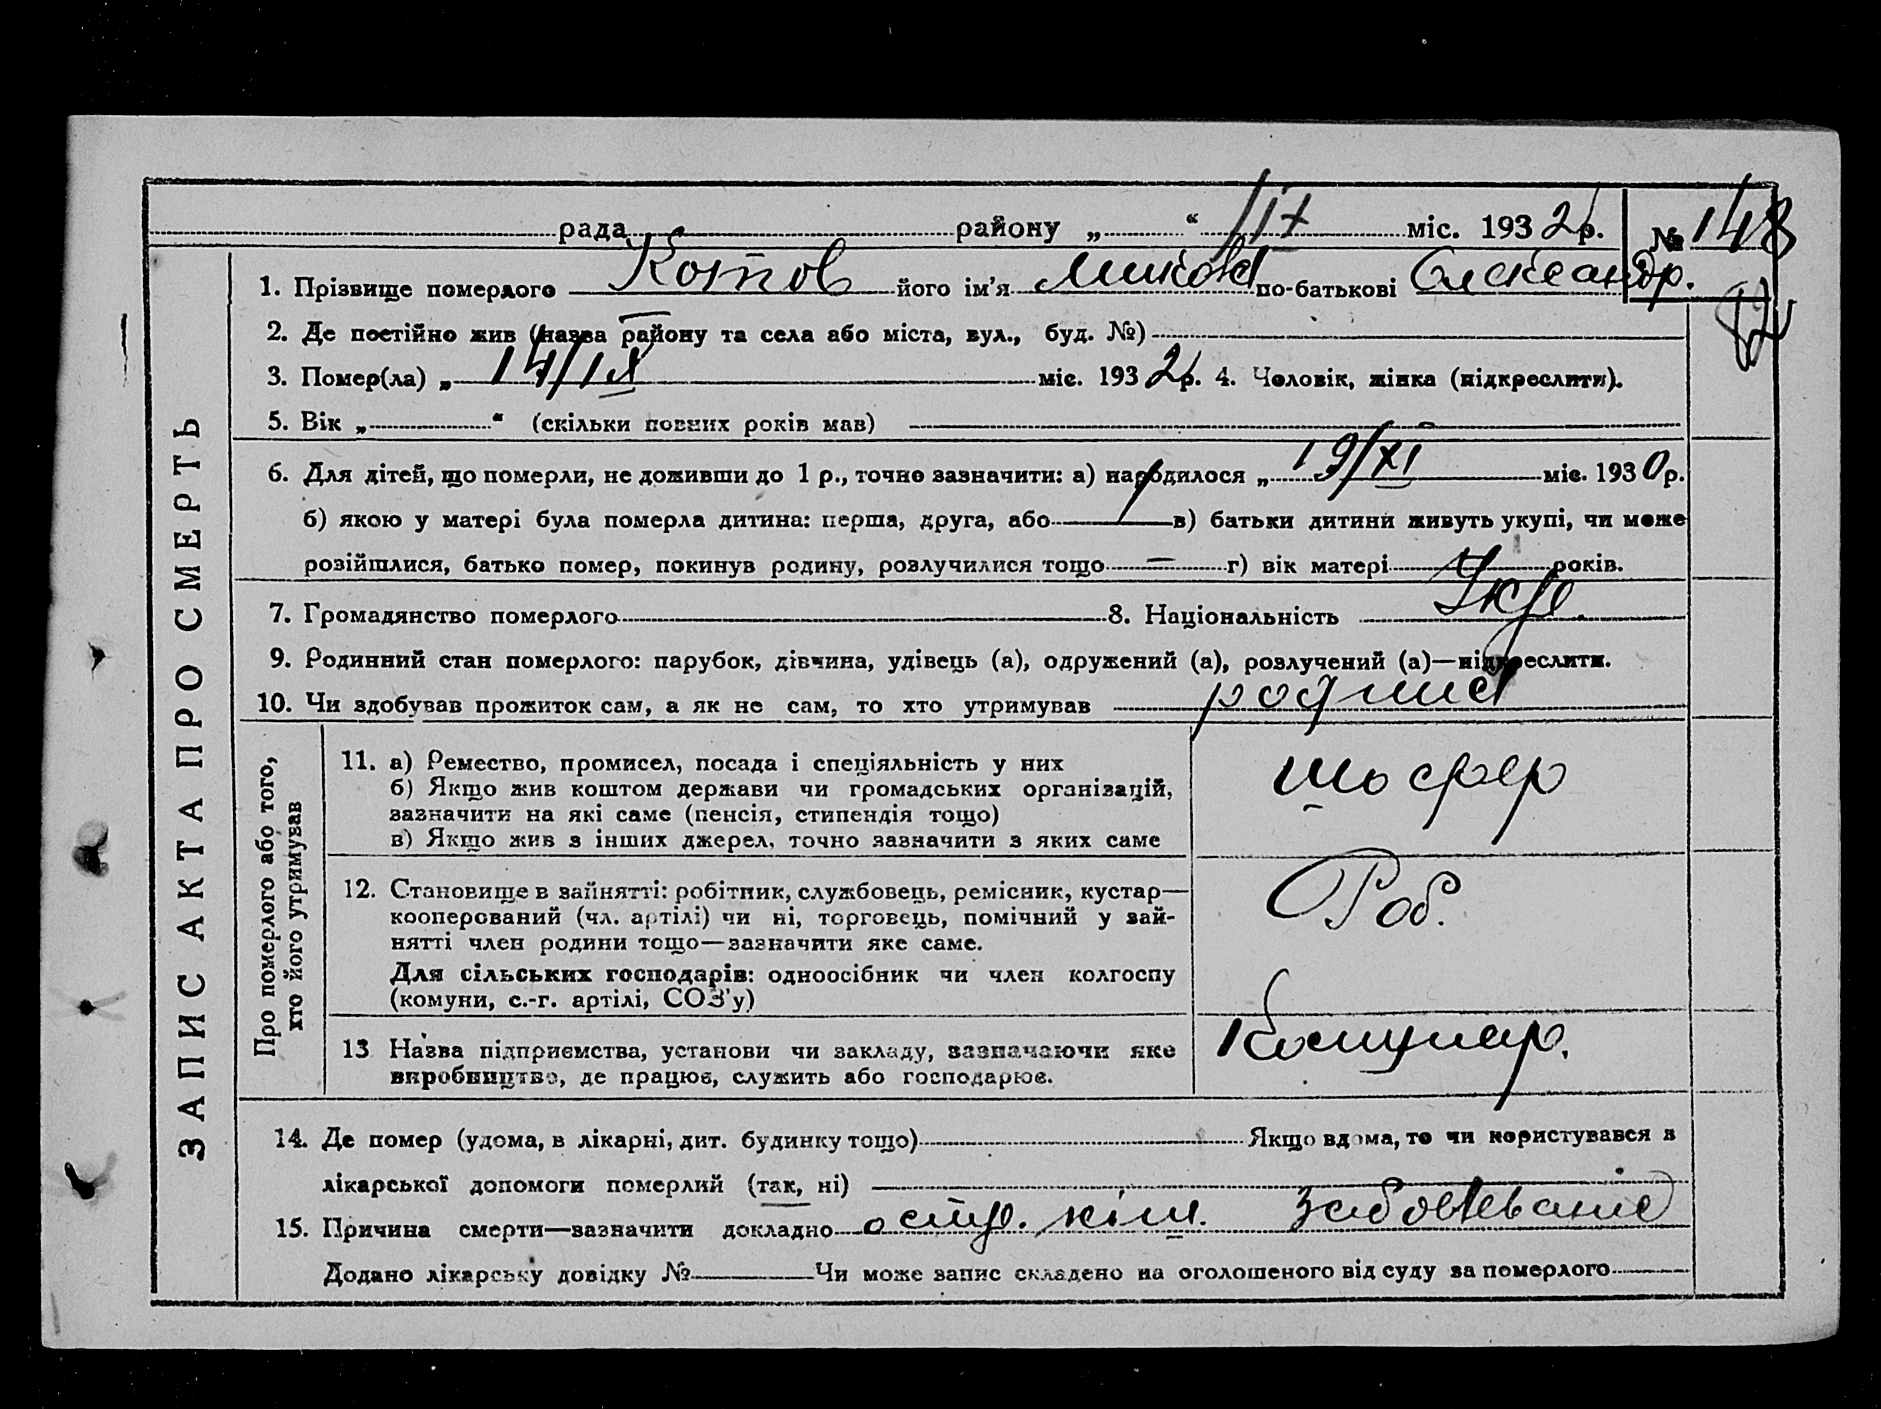 рада района району „ “ /IX міс. 1932 р. № 148
1. Прізвище померлого Котов його ім’я Микола по-батькові Олександр.
2. Де постійно жив (назва району та села або міста, вул., буд. №)
3. Помер(ла) „ 14/IX міс. 1932 р. 4. Чоловік, жінка (підкреслити).
5. Вік „ “ (скільки повних років мав)
6. Для дітей, що померли, не доживши до 1 р., точно зазначити: а) народилося „ 19/XI міс. 1930 р.
б) якою у матері була померла дитина: перша, друга, або в) батьки дитини живуть укупі, чи може
розійшлися, батько помер, покинув родину, розлучилися тощо — г) вік матері років.
7. Громадянство померлого 8. Національність Укр.
9. Родинний стан померлого: парубок, дівчина, удівець (а), одружений (а), розлучений (а)—підкреслити.
10. Чи здобував прожиток сам, а як не сам, то хто утримував родина
ЗАПИС АКТА ПРО СМЕРТЬ
Про померлого або того,
хто його утримував
11. а) Ремество, промисел, посада і спеціяльність у них
б) Якщо жив коштом держави чи громадських організацій,
зазначити на які саме (пенсія, стипендія тощо)
в) Якщо жив з інших джерел, точно зазначити з яких саме
шофер
12. Становище в зайнятті: робітник, службовець, ремісник, кустар—
кооперований (чл. артілі) чи ні, торговець, помічний у зай-
нятті член родини тощо—зазначити яке саме.
Для сільських господарів: одноосібник чи член колгоспу
(комуни, с.-г. артілі, СОЗ’у)
Роб.
13 Назва підприємства, установи чи закладу, зазначаючи яке
виробництво, де працює, служить або господарює.
Комунар.
14. Де помер (удома, в лікарні, дит. будинку тощо) Якщо вдома, то чи користувався з
лікарської допомоги померлий (так, ні)
15. Причина смерти—зазначити докладно остр. кіш. заболевание
Додано лікарську довідку № Чи може запис складено на оголошеного від суду за померлого